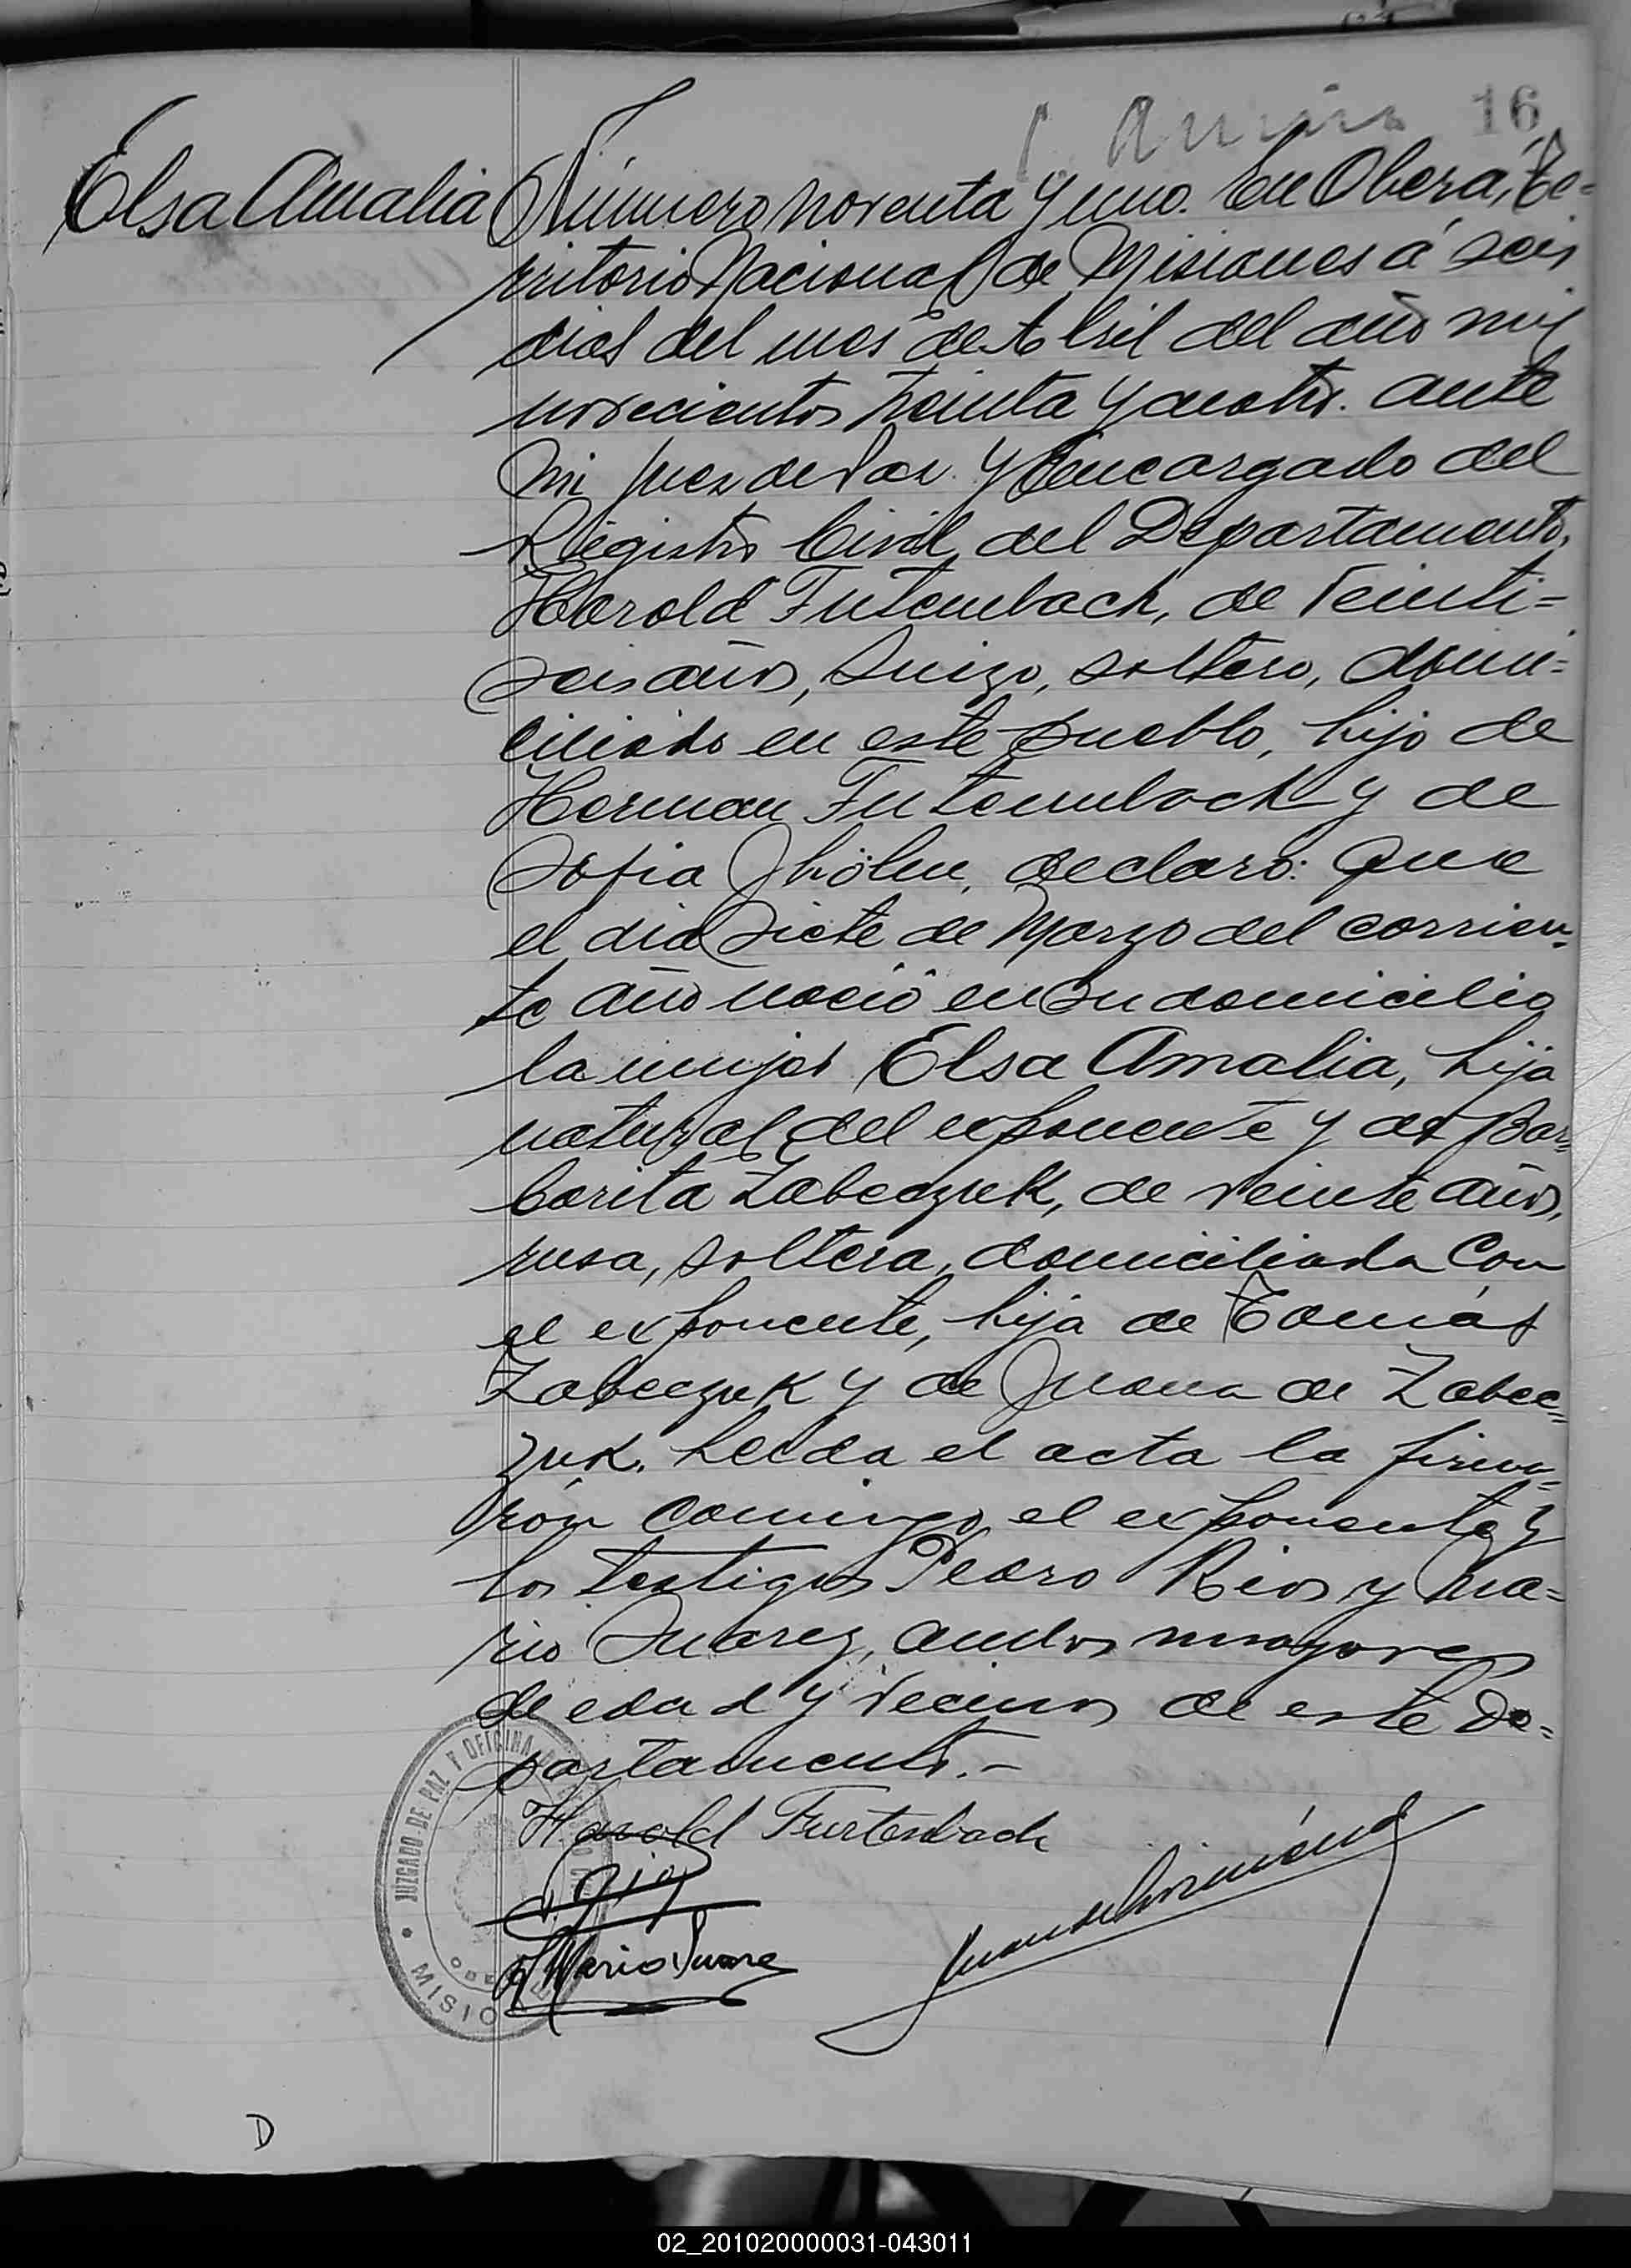 16
Elsa Amalia
Número noventa y uno. En Oberá, Te=
rritorio Nacional de Misiones á seis
dias del mes de Abril del año mil
novecientos treinta y cuatro. ante
mi Juez de Paz y Encargado del
Registro Civil del Departamento,
Harold Futembach, de veinti=
seis años, Suizo, soltero, domi=
ciliado en este pueblo, hijo de
Herman Futembach y de
Sofia declaro: Que
el dia siete de Marzo del corrien=
te año nació en su domicilio
la mujer Elsa Amalia, hija
natural del exponente y de Bar=
barita Zabeczuk, de veinte años,
rusa, soltera, domiciliada con
el exponente, hija de Tomás
Zabeczuk y de Juana de Zabec=
zuk. Leida el acta la firma=
rón conmigo el exponente y
los testigos Pedro Rios y Ma=
rio Suarez, ambos mayores
de edad y vecinos de este De=
partamento.-
Harold Furtenbach
Mario Suarez
JUZGADO DE PAZ Y OFICINA
MISIO
D
02_201020000031-043011